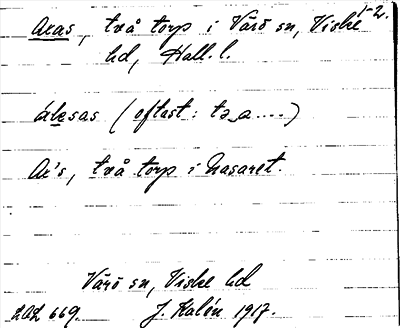 1-2.
Aras, två torp i Värö sn, Viske
hd, Hall. l.
(oftast: tə_a....)
Ar's, två torp i Nasaret.
Värö sn, Viske hd
LAL 669. J. Kalén 1917.